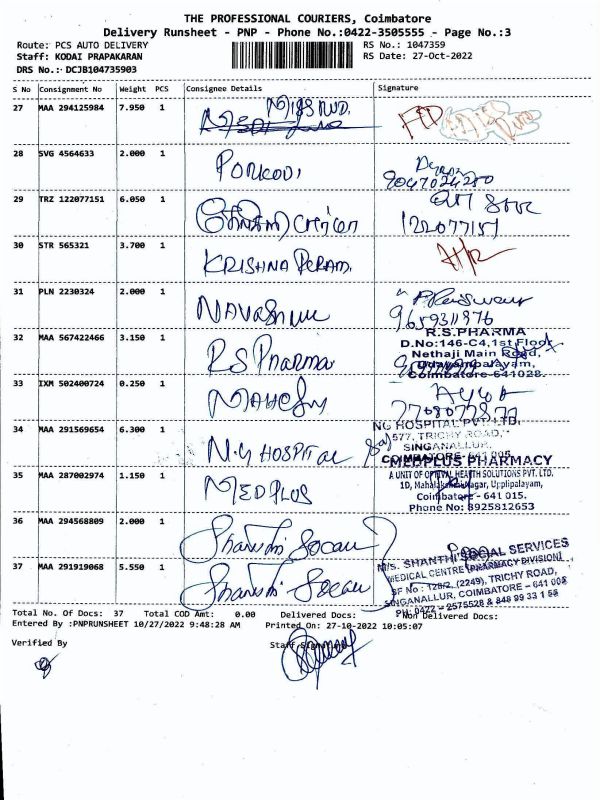 THE PROFESSIONAL COURIERS, Coimbatore
Delivery Runsheet - PNP - Phone No.:0422-3505555 - Page No.:3
Route: PCS AUTO DELIVERY
RS No.: 1047359
Staff: KODAI PRAPAKARAN
RS Date: 27-Oct-2022
DRS No.: DCJB104735903
S No Consignment No Weight PCS Consignee Details Signature
27 MAA 294125984 7.950 1
28 SVG 4564633 2.000 1 PONKODI
9047024250
29 TRZ 122077151 6.050 1
122077151
30 STR 565321 3.700 1 KRISHNA PERAM.
31 PLN 2230324 2.000 1
9659311876
32 MAA 567422466 3.150 1 RS Pharma
R.S.PHARMA
D.No:146-C4,1st Floor
Nethaji Main Road,
Coimbatore-641028.
33 IXM 502400724 0.250 1
34 MAA 291569654 6.300 1 N.G HOSPITAL
NG HOSPITAL PVT. LTD.
577, TRICHY ROAD,
SINGANALLUR,
COIMBATORE-641 005
35 MAA 287002974 1.150 1 MEDPLUS
MEDPLUS PHARMACY
A UNIT OF OPTIVAL HEALTH SOLUTIONS PVT. LTD.
1D, Mahalakshmi Nagar, Upplipalayam,
Coimbatore - 641 015.
Phone No: 8925812653
36 MAA 294568809 2.000 1 Shanthi Social
37 MAA 291919068 5.550 1 Shanthi Social
M/s. SHANTHI SOCIAL SERVICES
MEDICAL CENTRE (PHARMACY DIVISION)
SF No : 128/2, (2249), TRICHY ROAD,
SINGANALLUR, COIMBATORE - 641 005
PH: 0422 - 2575528 & 848 99 33 1 58
Total No. Of Docs: 37 Total COD Amt: 0.00 Delivered Docs: Non Delivered Docs:
Entered By :PNPRUNSHEET 10/27/2022 9:48:28 AM Printed On: 27-10-2022 10:05:07
Verified By Staff Signature